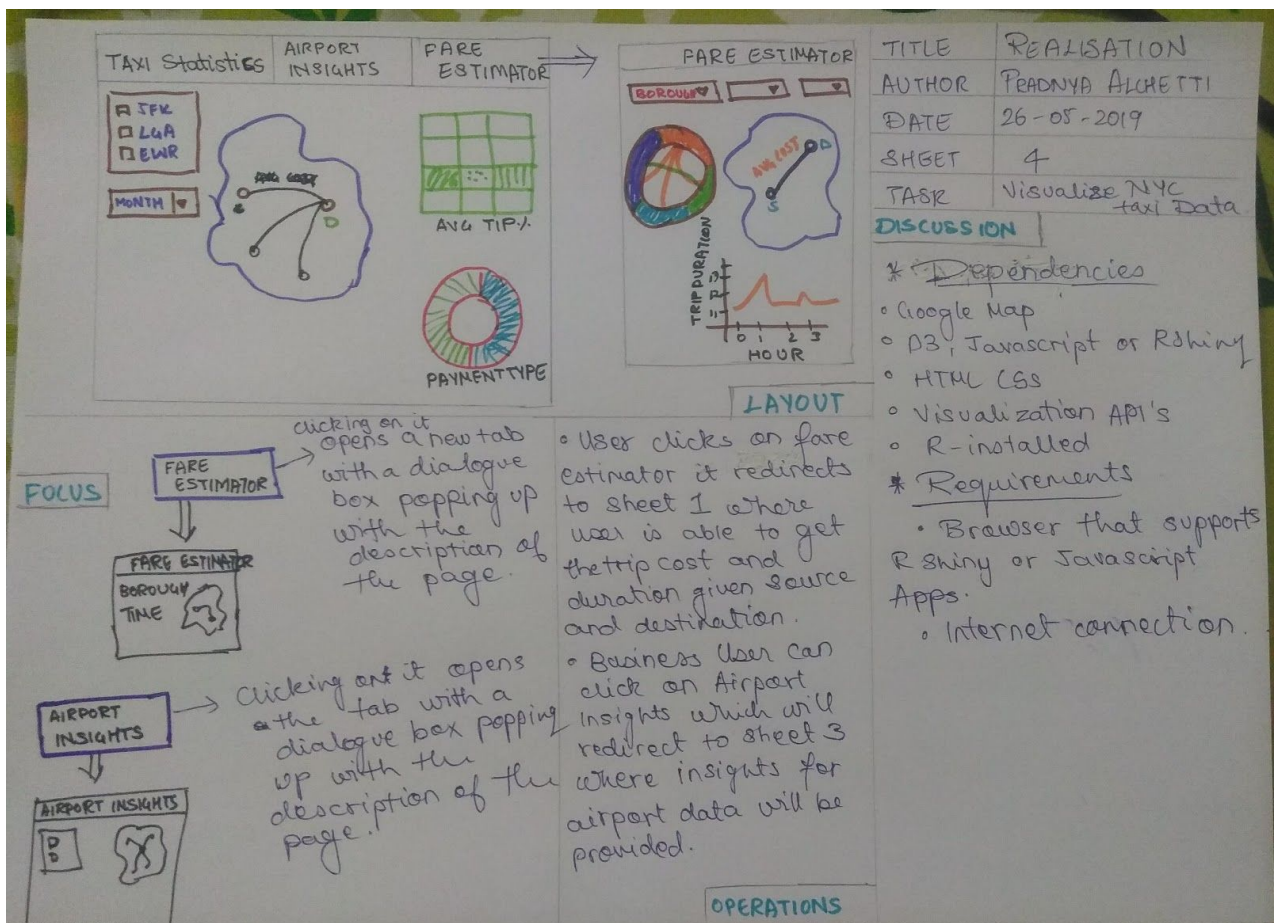 TAXI Statistics
AIRPORT
INSIGHTS
FARE
ESTIMATOR
JFK
LGA
EWR
MONTH
AVG COST
D
AVG TIP%
PAYMENT TYPE
FARE ESTIMATOR
BOROUGH
AVG COST
D
S
TRIP DURATION
0 1 2 3
HOUR
LAYOUT
TITLE REALISATION
AUTHOR PRADNYA ALCHETTI
DATE 26-05-2019
SHEET 4
TASK Visualize NYC
taxi Data.
DISCUSSION
* Dependencies
• Google Map
• D3, Javascript or RShiny
• HTML CSS
• Visualization API's
• R-installed
* Requirements
• Browser that supports
R Shiny or Javascript
Apps.
• Internet connection.
FOCUS
FARE
ESTIMATOR
clicking on it
opens a new tab
with a dialogue
box popping up
with the
description of
the page.
FARE ESTIMATOR
BOROUGH
TIME
AIRPORT
INSIGHTS
clicking on it opens
the tab with a
dialogue box popping
up with the
description of the
page.
AIRPORT INSIGHTS
• User clicks on fare
estimator it redirects
to sheet 1 where
user is able to get
the trip cost and
duration given source
and destination.
• Business User can
click on Airport
insights which will
redirect to sheet 3
where insights for
airport data will be
provided.
OPERATIONS